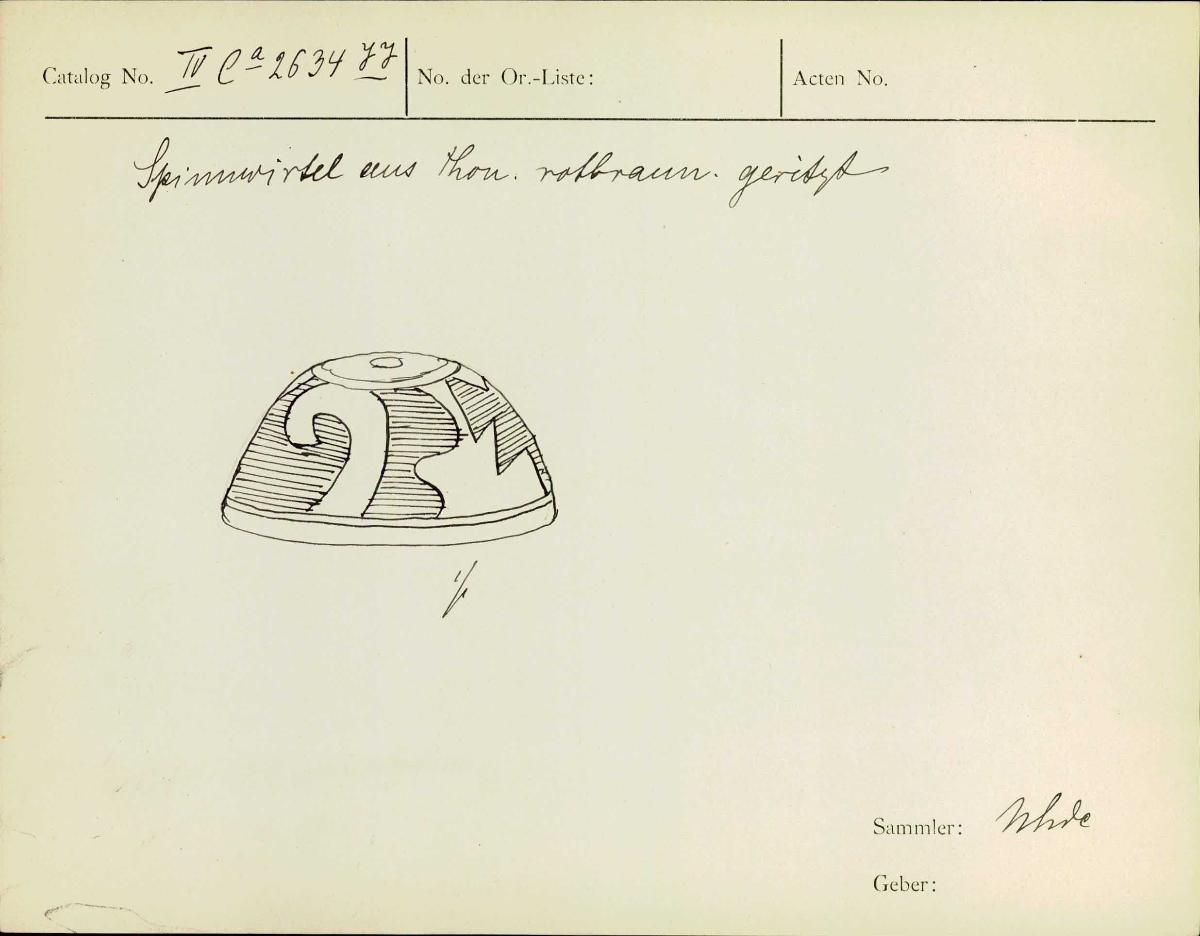 Catalog No. IV Ca 2634 yy No. der Or.-Liste: Acten No.
Spinnwirtel aus Thon. rotbraun. geritzt
1/1
Sammler: Uhde
Geber: